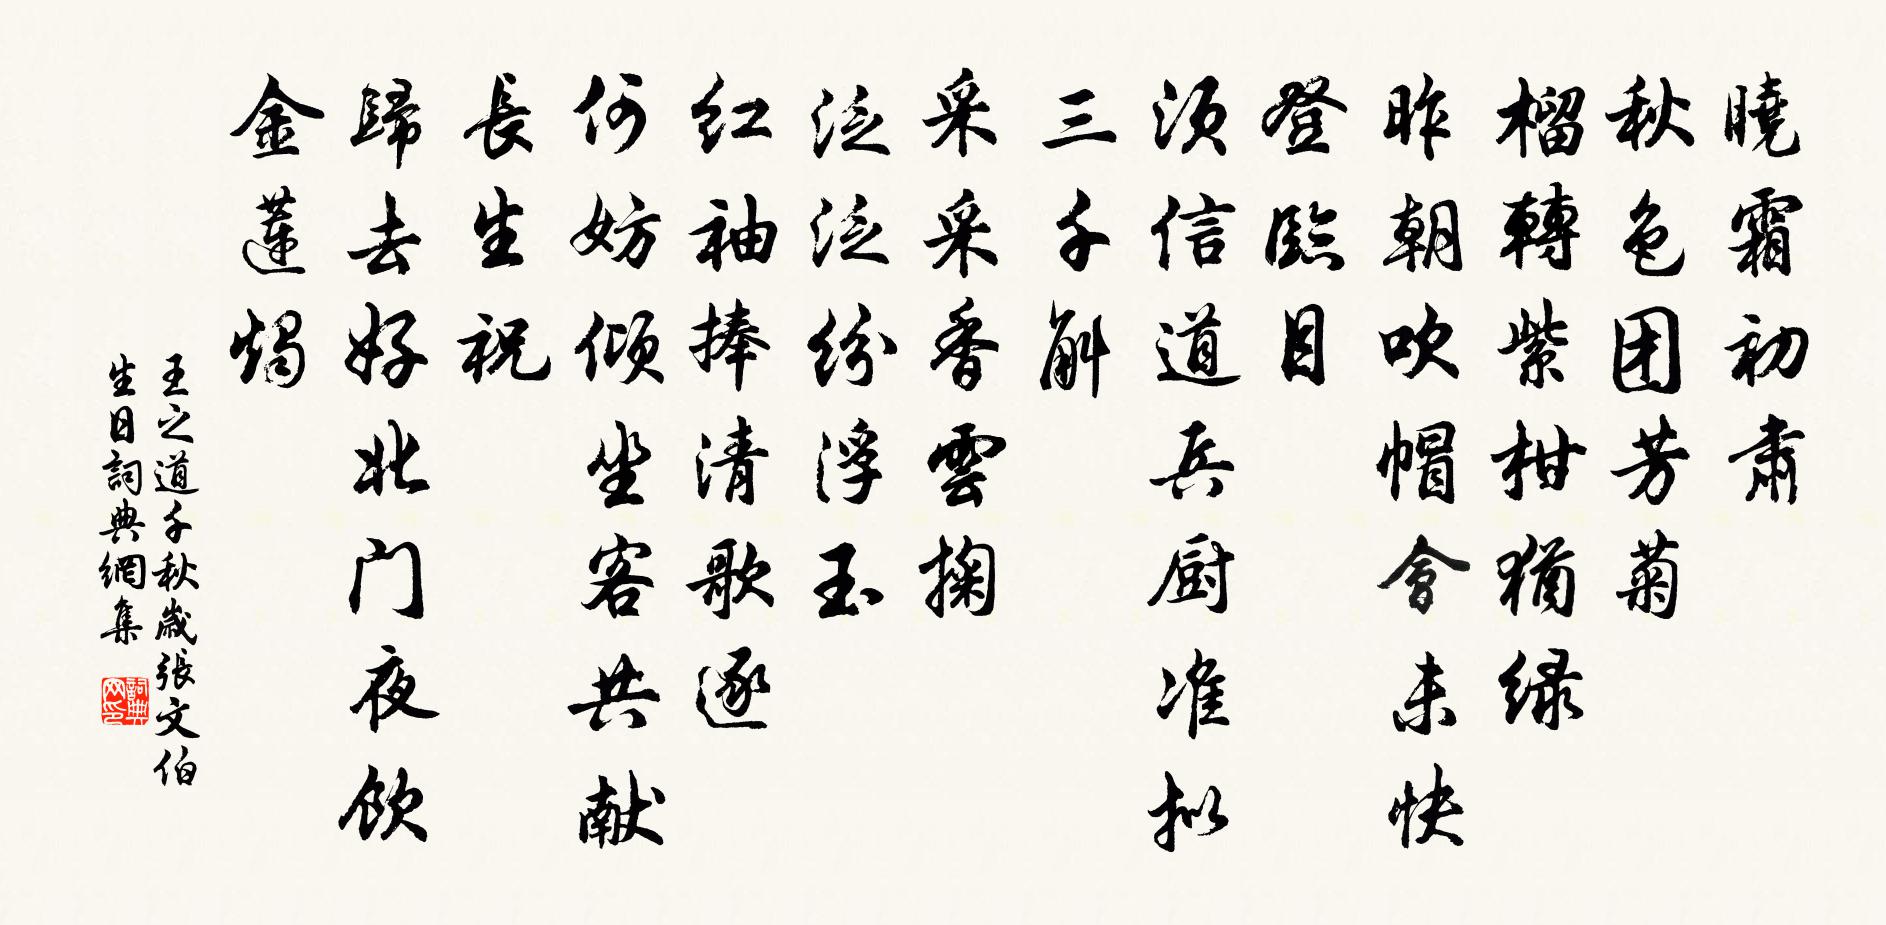 曉霜初肅
秋色团芳菊
榴轉紫柑猶绿
昨朝吹帽會未快
登臨目
须信道兵厨准拟
三千斛
采采香雲掬
泛泛纷浮玉
红袖捧清歌逐
何妨倾坐客共献
長生祝
歸去好北门夜饮
金蓮燭
王之道千秋歲張文伯
生日詞典網集
詞典网印